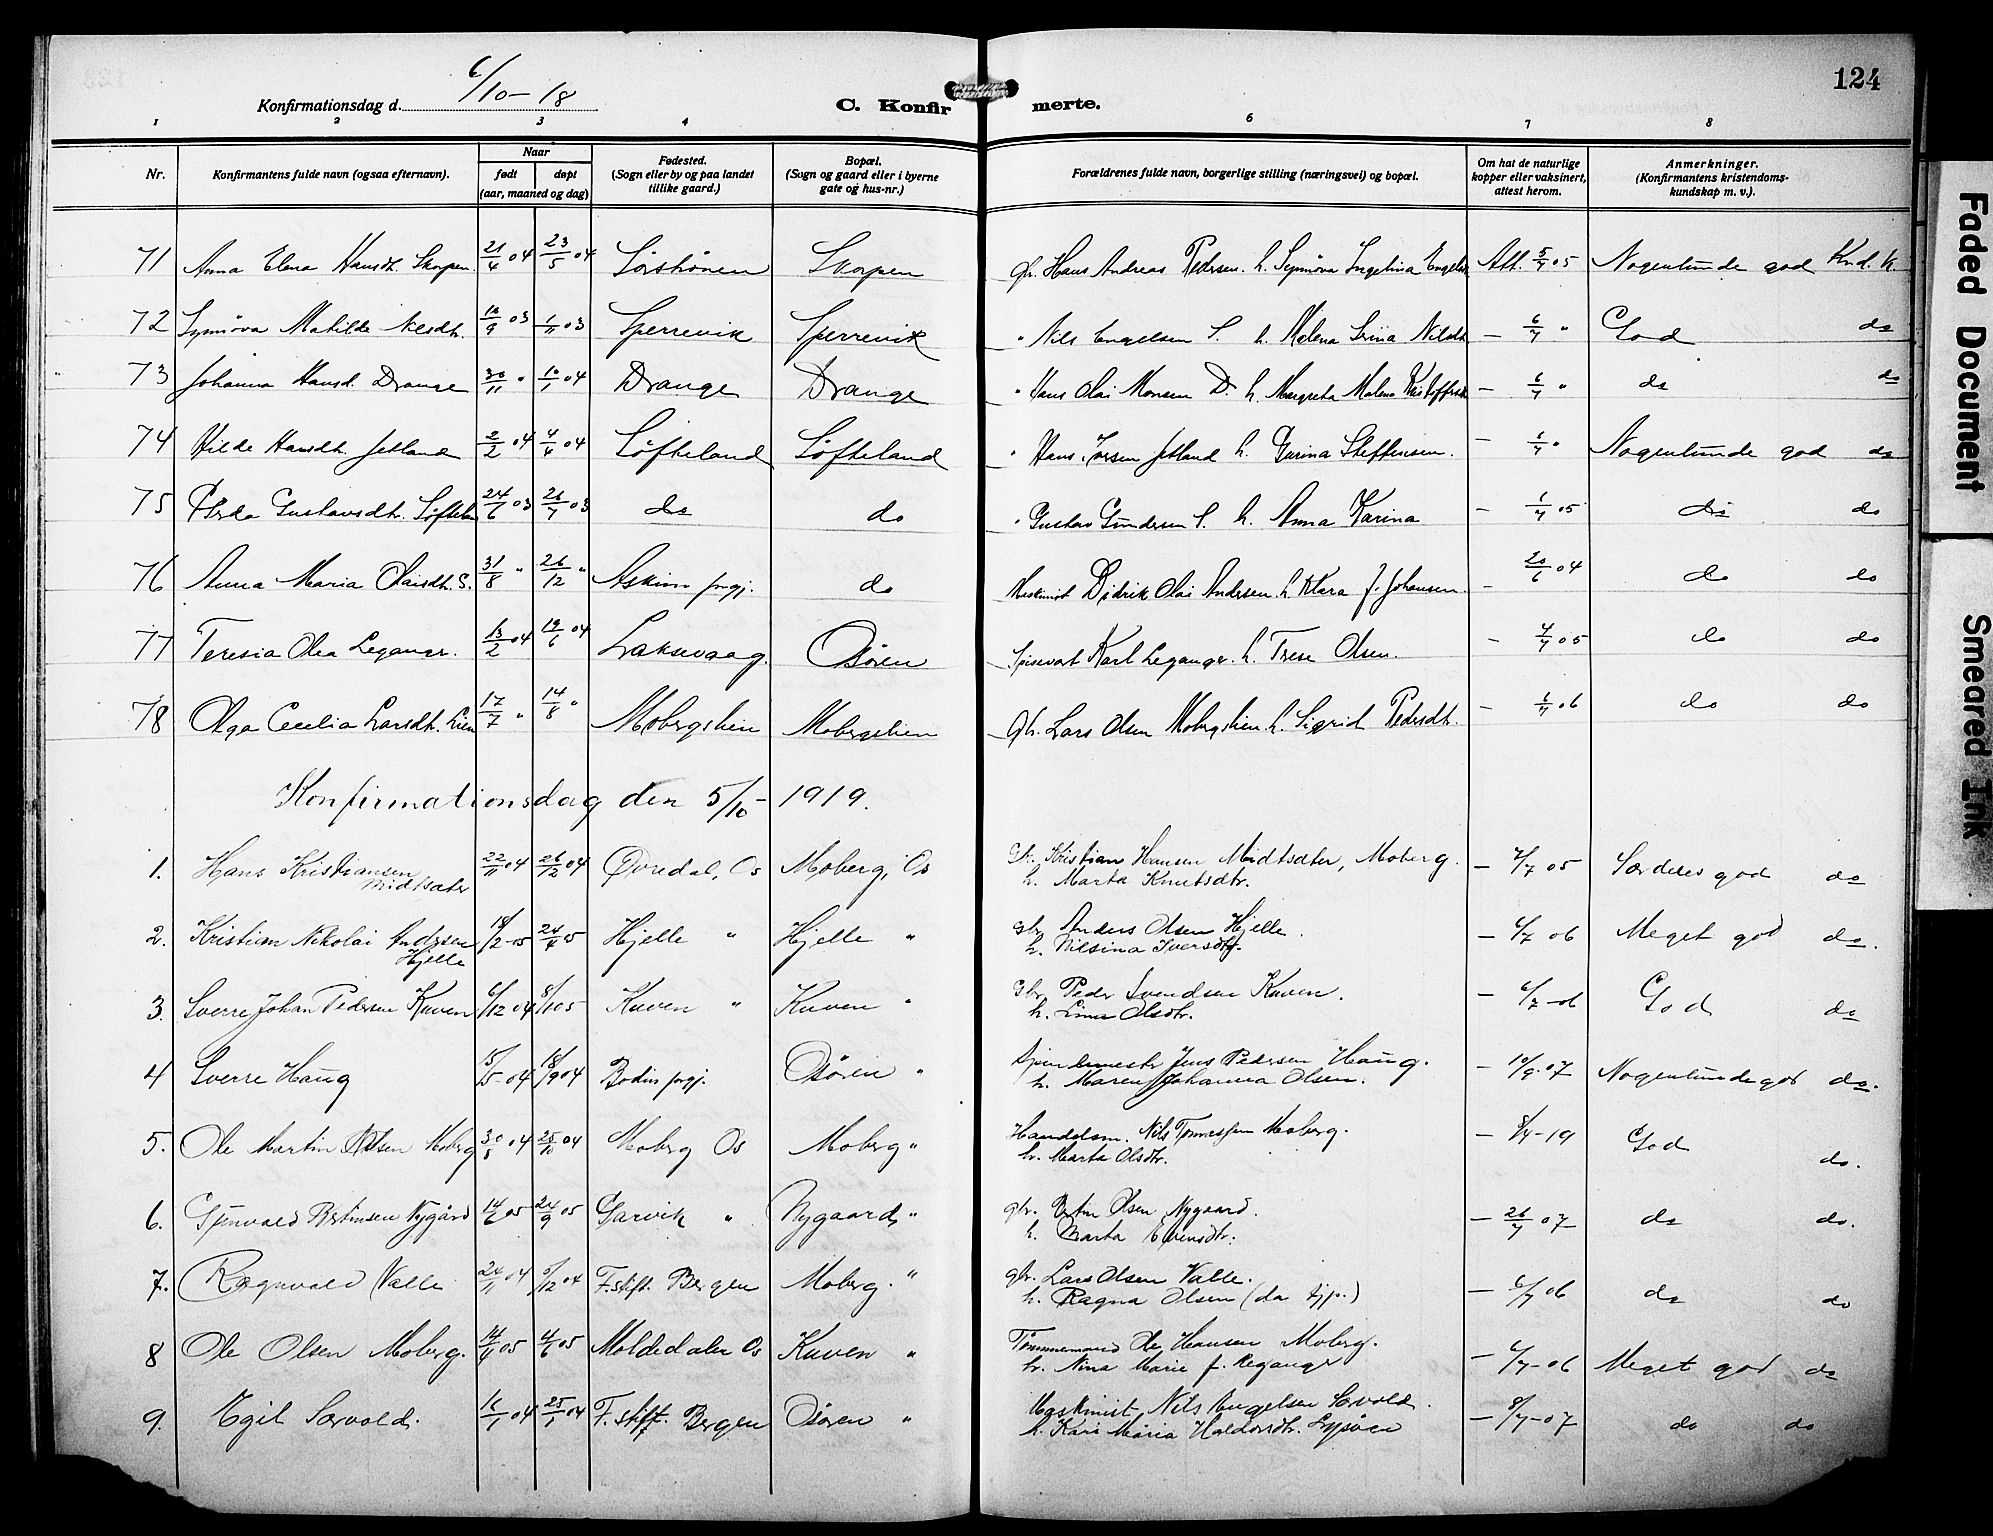 124
Konfirmationsdag d. 6/10-18
C. Konfirmerte.
1 2 3 4 5 6 7 8
Nr.
Konfirmantens fulde navn (ogsaa efternavn).
Naar
født døpt
(aar, maaned og dag)
Fødested.
(Sogn eller by og paa landet
tillike gaard.)
Bopæl.
(Sogn og gaard eller i byerne
gate og hus-nr.)
Forældrenes fulde navn, borgerlige stilling (næringsvei) og bopæl.
Om hat de naturlige
kopper eller vaksinert,
attest herom.
Anmerkninger.
(Konfirmantens kristendoms-
kundskap m. v.).
71 Anna Elena Hansdt. Skorpen. 21/4 04 23/5 04 Sørstrønen Skorpen Gbr. Hans Andreas Pedersen h. Synnøva Ingelina Att. 5/7 05 Nogenlunde god Knd. k.
72 Synnøva Matilde Nilsdt. 10/9 03 1/11 03 Sperrevik Sperrevik " Nils Engelsen S. h. Malena Nilsdt. - 6/7 " God do
73 Johanna Hansd. Drange 30/11 " 10/1 04 Drange Drange " Hans Olai Monsen D. h. Margreta Malena - 6/7 " do do
74 Hilde Hansdt. Jetland 2/2 04 4/4 04 Søfteland Søfteland " Hans Jetland h. Gurina Steffensen. - 6/7 " Nogenlunde god do
75 Gustavsdtr. 24/6 03 26/7 03 do do " Gustav Gundersen S. h. Anna Karina - 6/7 05 do do
76 Anna Maria Olaisdt. S. 31/8 " 26/12 " Askim prgj. do Maskinist Didrik Olai Andersen h. Klara f. Johansen. - 20/6 04 do do
77 Teresia Olea Leganger. 13/2 04 19/6 04 Laksevaag Osøren Spisevert Karl Leganger. h. Trese Olsen. - 4/7 05 do do
78 Olga Cecilia Larsdt. Lien 17/7 " 14/8 " Moberglien Moberglien Gbr. Lars Olsen Moberglien h. Sigrid Pedersdt. - 6/7 06 do do
Konfirmationsdag den 5/10 - 1919.
1. Hans Kristiansen 22/11 04 26/12 04 Øvredal, Os Moberg, Os Gbr. Kristian Hansen Midtsæter, Moberg. - 7/7 05 Særdeles god do
Midtsæter h. Marta Knutsdtr.
2. Kristian Nikolai Andersen 18/2-05 24/4 05 Hjelle " Hjelle " Gbr Anders Olsen Hjelle. - 6/7 06 Meget god do.
Hjelle h. Nilsina Iversdtr.
3. Sverre Johan Pedersen Kuven 6/12 04 8/1 05 Kuven " Kuven " Gbr Peder Svendsen Kuven. - 6/7-06 God do
h. Lina Olsdtr.
4 Sverre Haug 15/5-04 18/9 04 Bodin prgj. Osøren " Spindemester Jens Pedersen Haug. - 10/9.07 Nogenlunde god do.
h. Maren Johanna Olsen.
5. Ole Martin Nilsen Moberg 30/8 04 25/10 04 Moberg Os Moberg " Handelsm. Nils Tønnessen Moberg. - 8/4-19 God do.
h. Marta Olsdtr.
6. Gunvald Bertinsen Nygård 14/6 05 24/9 05 Garvik " Nygaard " gbr. Bertin Olsen Nygaard. - 26/7 07 do do.
h. Marta
7. Ragnvald Valle 24/11 04 5/12 04 F.stift. Bergen Moberg. " gbr. Lars Olsen Valle. - 6/7 06 do do
h. Ragna Olsen (da tjp.)
8 Ole Olsen Moberg. 14/4 05 4/6 05 Moldedalen Os Kuven " Tømmermand Ole Hansen Moberg. - 6/7-06 Meget god do
h. Nina Marie f. Leganger
9. Egil Sørvold. 16/1 04 25/1 04 F. stift. Bergen Osøren " Maskinist Nils Engelsen Sørvold. - 8/7-07 do do
h. Kari Maria Haldorsdtr. Lysøen
Faded Document
Smeared Ink